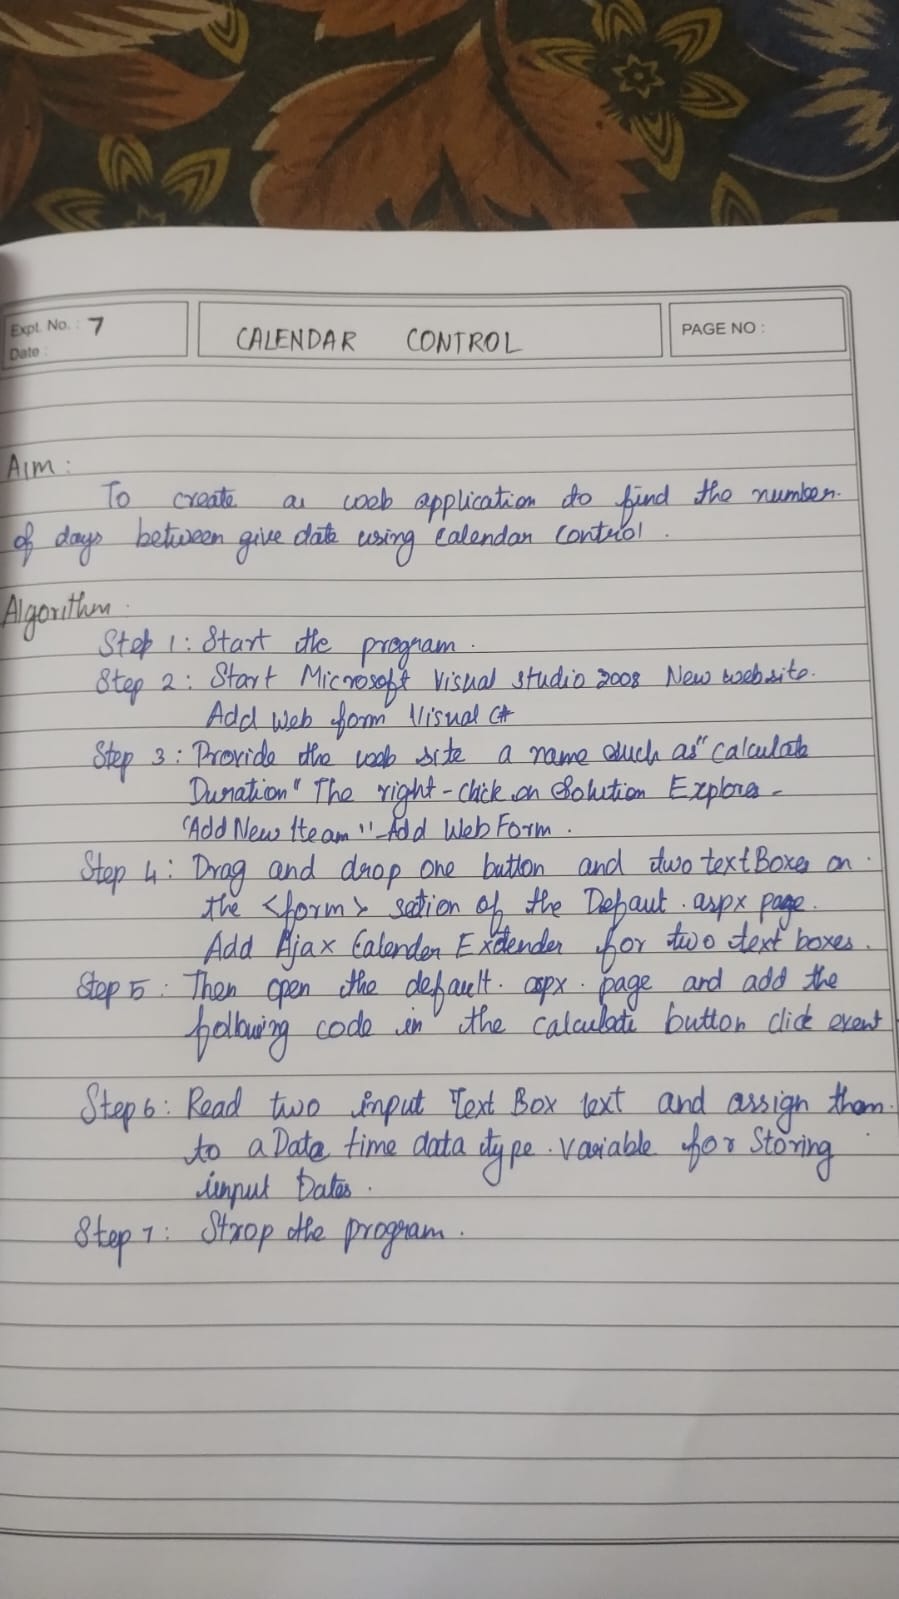 Expt. No. : 7
Date :
CALENDAR CONTROL
PAGE NO :
Aim :
To create a web application to find the number
of days between give date using Calendar Control .
Algorithm .
Step 1 : Start the program .
Step 2 : Start Microsoft Visual studio 2008 New website.
Add web form Visual C#
Step 3 : Provide the web site a name such as "calculate
Duration" The right-click on Solution Explorer -
"Add New Iteam" - Add Web Form .
Step 4 : Drag and drop one button and two textBoxes on
the <form> sation of the Defaut . aspx page.
Add Ajax Calender Extender for two text boxes .
Step 5 : Then open the default . aspx . page and add the
following code in the calculate button click event
Step 6 : Read two input Text Box text and assign them
to a Data time data type . variable for Storing
input Dates .
Step 7 : Strop the program .